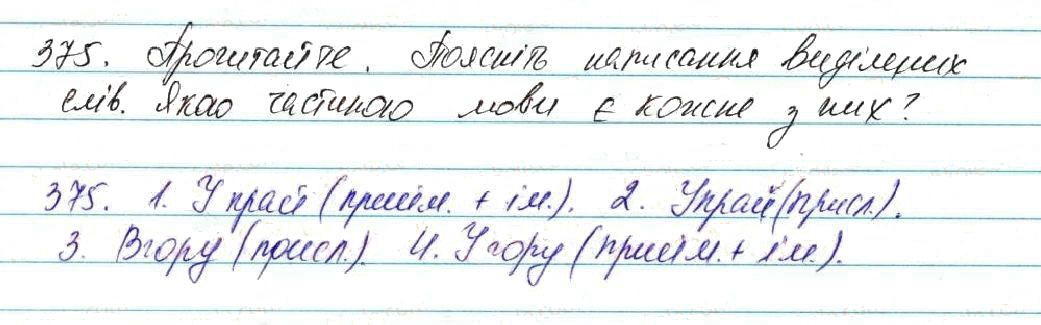 375. Прочитайте. Поясніть написання виділених
слів. Якою частиною мови є кожне з них?
375. 1. У край (прийм. + ім.). 2. Украй (присл.).
3. Вгору (присл.). 4. У гору (прийм. + ім.).